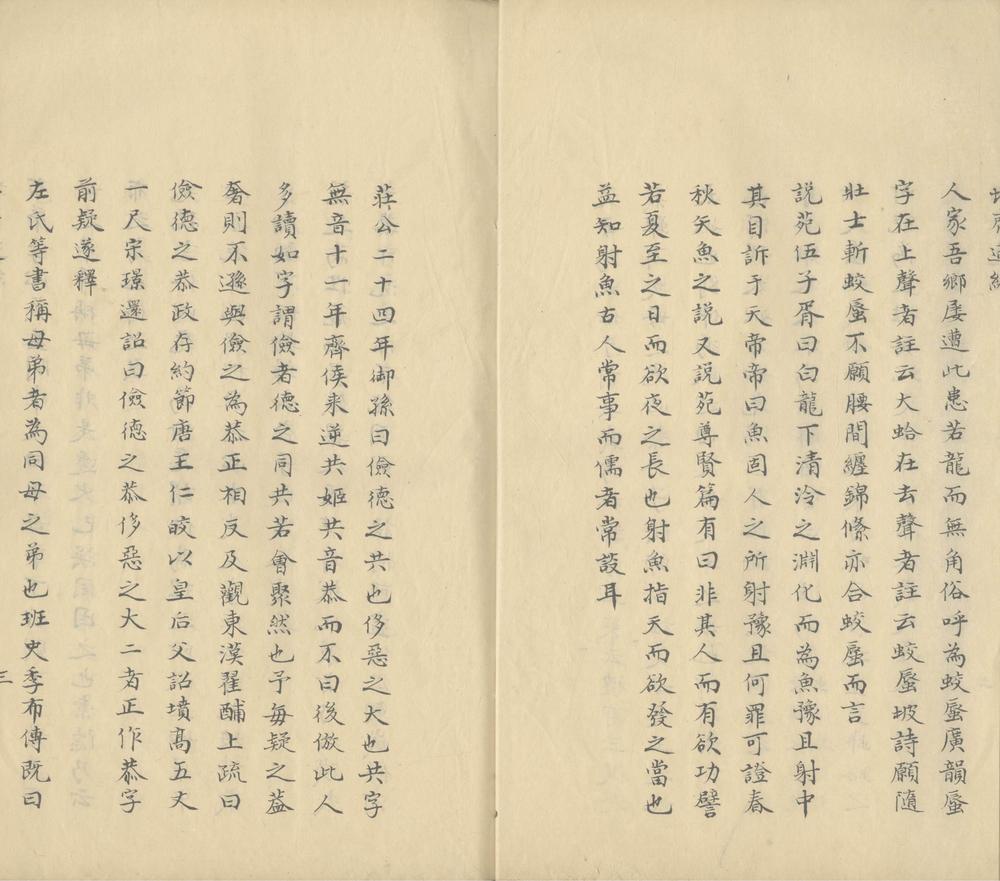 人家吾鄉屢遭此患若龍而無角俗呼為蛟蜃廣韻蜃
字在上聲者註云大蛤在去聲者註云蛟蜃坡詩願隨
壯士斬蛟蜃不願腰間纏錦絛亦合蛟蜃而言
説苑伍子胥曰白龍下清泠之淵化而為魚豫且射中
其目訴于天帝帝曰魚固人之所射豫且何罪可證春
秋矢魚之説又説苑尊賢篇有曰非其人而有欲功譬
若夏至之日而欲夜之長也射魚指天而欲發之當也
益知射魚古人常事而儒者常設耳
莊公二十四年御孫曰儉德之共也侈惡之大也共字
無音十一年齊侯来逆共姬共音恭而不曰後倣此人
多讀如字謂儉者德之同共若會聚然也予每疑之葢
奢則不遜與儉之為恭正相反及觀東漢翟酺上疏曰
儉德之恭政存約節唐王仁皎以皇后父詔墳髙五丈
一尺宋璟還詔曰儉德之恭侈惡之大二者正作恭字
前疑遂釋
左氏等書稱母弟者為同母之弟也班史季布傳既曰
三